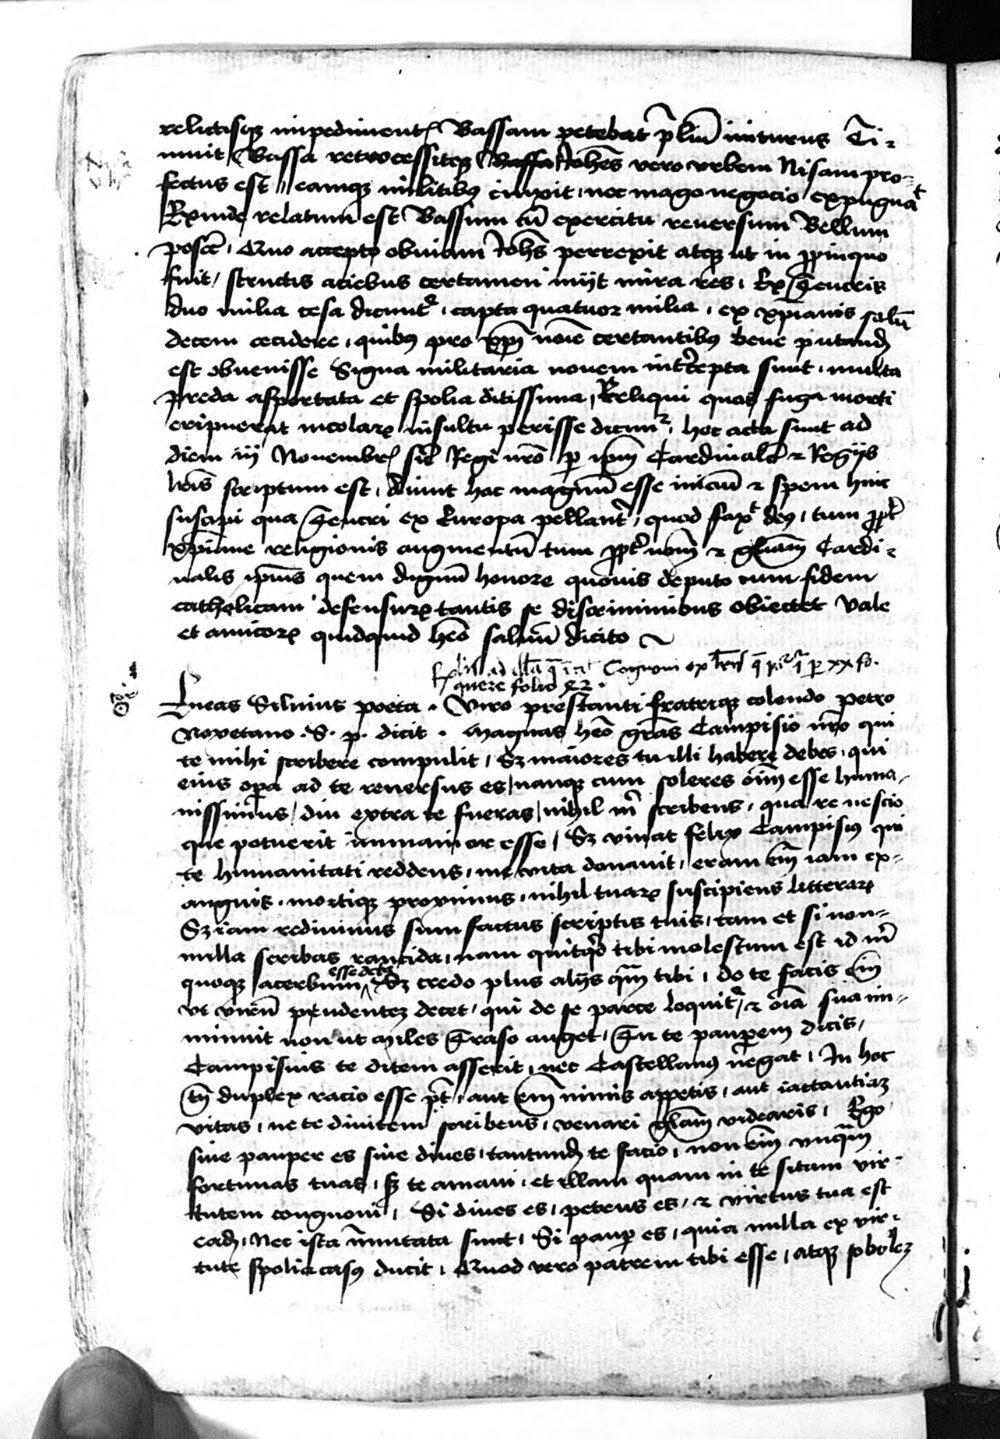 relictisqz impedimentꝭ Bassam petebat p̄liū initurus Ti-
muit Bassa retrocessitqz Bassa Joh̄es vero vrbem Nisam pro-
fectus est, eamqz militibꝰ cinxit, nec mago negocio expugnat
Exinde relatum est Bassum cū exercitu reuersum Bellum
poscē, Quo accepto obuiam Joh̄s perrexit atqz ut in ꝓpinquo
fuit, structis aciebus certamen iniit mira res, Ex Teucris
duo milia cesa dicunt̉, capta quatuor milia, ex xp̄ianis solū
decem cecidere, quibꝰ pro xp̄i noīe certantibꝰ bene putand
est obuenisse Signa militaria nouem intercepta sunt, multa
preda asportata et spolia ditissima, Reliqui quos fuga morti
eripuerat incolaꝝ insultu perisse dicunt̉, hec acta sunt ad
diem iij Nouembrꝭ sic Regi nr̄o p ip̄m Cardinalē ⁊ Regijs
lr̄is scriptum est, Aiunt hac magnū esse iniciū ⁊ spem hinc
suscipi qua Teucri ex Europa pellant̉, quod faxit deꝰ, tum ꝓpt̉
xp̄iane religionis augmentū tum ꝓpt̉ nom̄ ⁊ gl̄iam Cardi-
nalis ip̄ius quem dignū honore quouis deputo cum fidem
catholicam defensurꝰ tantis se discriminibus obiectet Vale
et amicoꝝ quidquid h̄eo saluū dicito
quere folio
Eneas Siluius poeta. Viro prestanti fratriqz colendo petro
Noxetano .S. p. dicit. Magnas h̄eo gr̄as Campisio nr̄o qui
te mihi scribere compulit, Sz maiores tu illi habere debes, qui
eius oꝑa ad te reuersus es, namqz cum soleres oīm esse huma-
nissimus, diu extra te fueras, nihil m̄ scribens, qua re nescio
que potuerit inmanior esse, Sz viuat felix Campisiꝰ qui
te humanitati reddens, me vita donauit, eram em̄ iam ex-
anguis, mortiqz proximus, nihil tuaꝝ suscipiens litteraꝝ
Sz iam rediuiuus sum factus scriptis tuis, tam et si non-
nulla scribas rancida, nam quitqd tibi molestum est id m̄
quoqz acerbum esse decet Sz credo plus alijs qm̄ tibi, do te facis em̄
vt virū prudentez decet, qui de se parce loquit̉, ⁊ oīa sua im-
minuit non ut miles Traso auget, Tu te pauꝑem dicis,
Campisius te ditem asserit, nec Castellanꝰ negat, In hoc
tn̄ duplex racio esse pt̄, aut em̄ nimis appetis, aut iactantiaz
vitas, ne te diuitem scribens, venari gl̄iam videaris, Ego
siue pauper es siue diues, tantund te facio, non em̄ vnqm̄
fortunas tuas, sz te amaui, et illam quam in te sitam vir-
tutem congnoui, Si diues es, petrus es, ⁊ virtus tua est
ead, nec ista īmutata sunt, Si paup es, quia nulla ex vir-
tute spolia casꝰ ducit, Quod vero patrem tibi esse, atqz sobolez